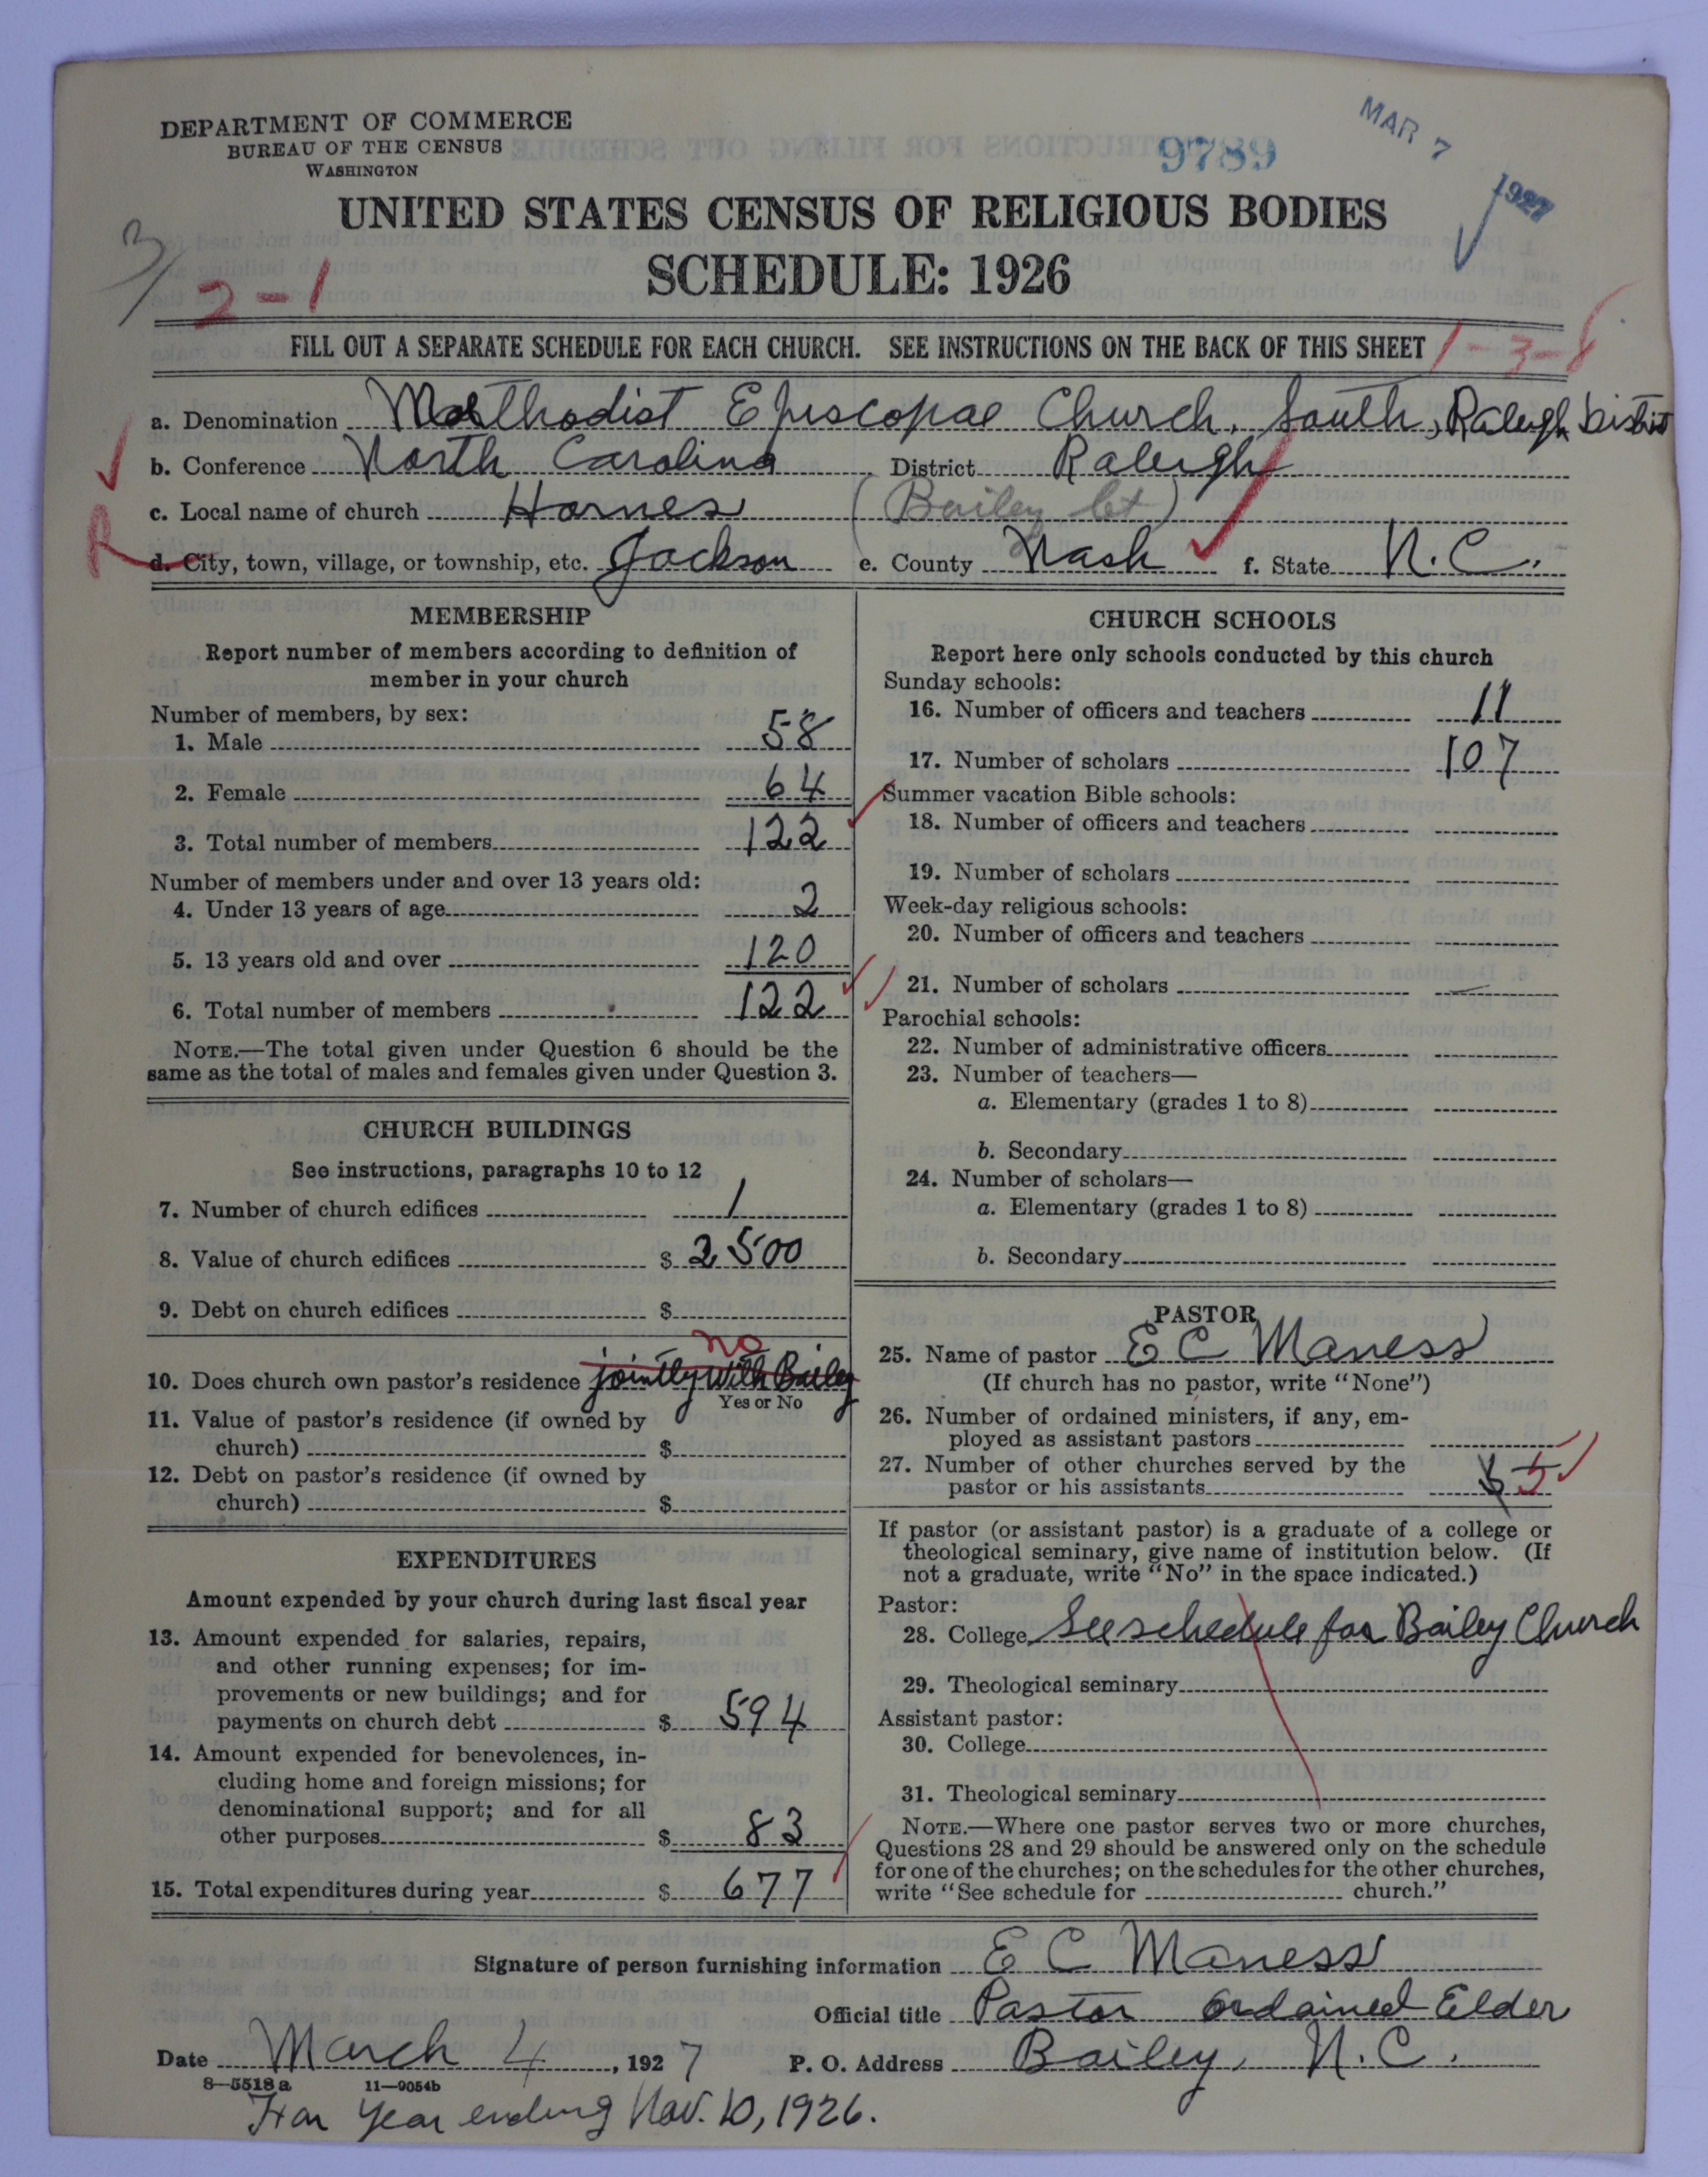 DEPARTMENT OF COMMERCE
BUREAU OF THE CENSUS
WASHINGTON
9789
MAR 7 1927
UNITED STATES CENSUS OF RELIGIOUS BODIES
SCHEDULE: 1926
3/
2-1
FILL OUT A SEPARATE SCHEDULE FOR EACH CHURCH. SEE INSTRUCTIONS ON THE BACK OF THIS SHEET
1-3-8
a. Denomination Methodist Episcopal Church, South, Raleigh District
b. Conference North Carolina District Raleigh
c. Local name of church Hornes (Bailey ct)
R
d. City, town, village, or township, etc. Jackson e. County Nash f. State N.C.
MEMBERSHIP
Report number of members according to definition of
member in your church
Number of members, by sex:
1. Male 58
2. Female 64
3. Total number of members 122
Number of members under and over 13 years old:
4. Under 13 years of age 2
5. 13 years old and over 120
6. Total number of members 122
NOTE.—The total given under Question 6 should be the
same as the total of males and females given under Question 3.
CHURCH BUILDINGS
See instructions, paragraphs 10 to 12
7. Number of church edifices 1
8. Value of church edifices $ 2500
9. Debt on church edifices $
no
10. Does church own pastor's residence jointly with Bailey
Yes or No
11. Value of pastor's residence (if owned by
church) $
12. Debt on pastor's residence (if owned by
church) $
EXPENDITURES
Amount expended by your church during last fiscal year
13. Amount expended for salaries, repairs,
and other running expenses; for im-
provements or new buildings; and for
payments on church debt $ 594
14. Amount expended for benevolences, in-
cluding home and foreign missions; for
denominational support; and for all
other purposes $ 83
15. Total expenditures during year $ 677
CHURCH SCHOOLS
Report here only schools conducted by this church
Sunday schools:
16. Number of officers and teachers 11
17. Number of scholars 107
Summer vacation Bible schools:
18. Number of officers and teachers
19. Number of scholars
Week-day religious schools:
20. Number of officers and teachers
21. Number of scholars
Parochial schools:
22. Number of administrative officers
23. Number of teachers—
a. Elementary (grades 1 to 8)
b. Secondary
24. Number of scholars—
a. Elementary (grades 1 to 8)
b. Secondary
PASTOR
25. Name of pastor E C Maness
(If church has no pastor, write "None")
26. Number of ordained ministers, if any, em-
ployed as assistant pastors
27. Number of other churches served by the
pastor or his assistants 5
If pastor (or assistant pastor) is a graduate of a college or
theological seminary, give name of institution below. (If
not a graduate, write "No" in the space indicated.)
Pastor:
28. College See schedule for Bailey Church
29. Theological seminary
Assistant pastor:
30. College
31. Theological seminary
NOTE.—Where one pastor serves two or more churches,
Questions 28 and 29 should be answered only on the schedule
for one of the churches; on the schedules for the other churches,
write "See schedule for church."
Signature of person furnishing information E C Maness
Official title Pastor Ordained Elder
Date March 4, 1927 P. O. Address Bailey, N.C.
8—5518a 11—9054b
For Year ending Nov. 10, 1926.